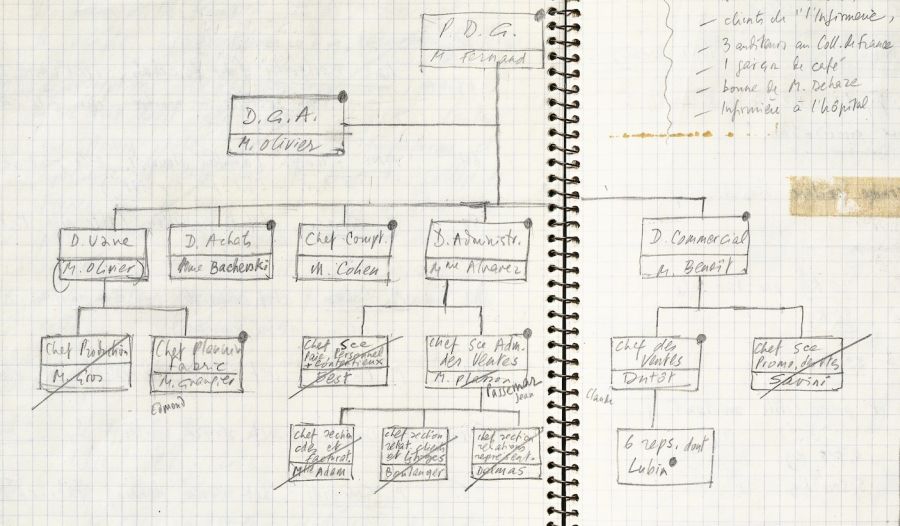 P. D. G.
M. Fernand
D. G. A.
M. Olivier
D. Usine
(M. Olivier)
D. Achats
Mme Bacherski
Chef Compt.
M. Cohen
D. Administr.
Mme Alvarez
D. Commercial
M. Benoît
Chef Production
M. Gros
Chef Planning
Fabric
M. Granger
Edmond
Chef Sce
Paie, Personnel
+ Contentieux
Best
Chef Sce Adm.
des Ventes
M.
Passemar
Jean
Chef des
Ventes
Dutôt
Claude
Chef Sce
Promo. des Vtes
Savini
Chef section
cdes et
facturat.
Mlle Adam
Chef section
relat. clients
et litiges
Boulanger
Chef section
relations
représent.
Delmas
6 reps. dont
Lubin
– clients de "l'Infirmerie,
– 3 auditeurs au Coll. de France
– 1 garçon de café
– bonne de M. Dehaze
– Infirmière à l'hôpital